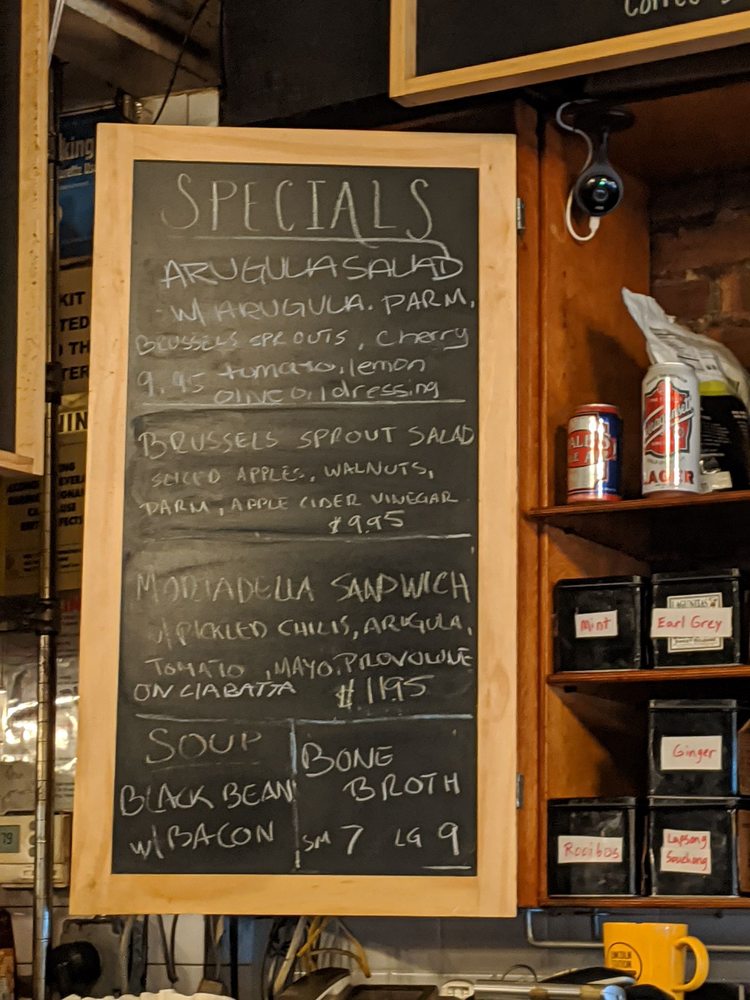 Coffee
king
KIT
TED
TH
TER
IN
SPECIALS
ARUGULA SALAD
W/ ARUGULA. PARM,
BRUSSELS SPROUTS, cherry
9.95 tomato, lemon
OLIVE oil dressing
BRUSSELS SPROUT SALAD
SLICED APPLES, WALNUTS,
PARM, APPLE CIDER VINEGAR
$9.95
MORTADELLA SANDWICH
w/ PICKLED CHILIS, ARUGULA,
TOMATO, MAYO, PROVOLONE
ON CIABATTA $11.95
SOUP
BLACK BEAN
w/ BACON
BONE
BROTH
SM 7 LG 9
LAGER
Mint
LAGUNITAS
Earl Grey
Ginger
Rooibos
Lapsong
Souchong
79